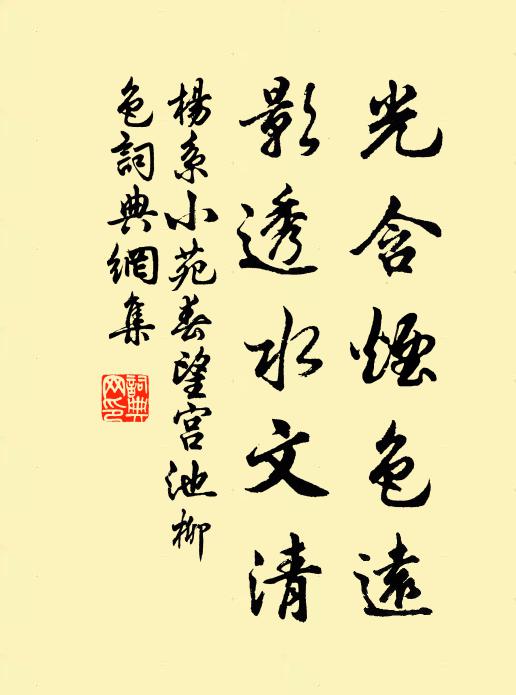 光含煙色遠
影透水文清
楊系小苑春望宮池柳
色詞典網集
詞典
网印